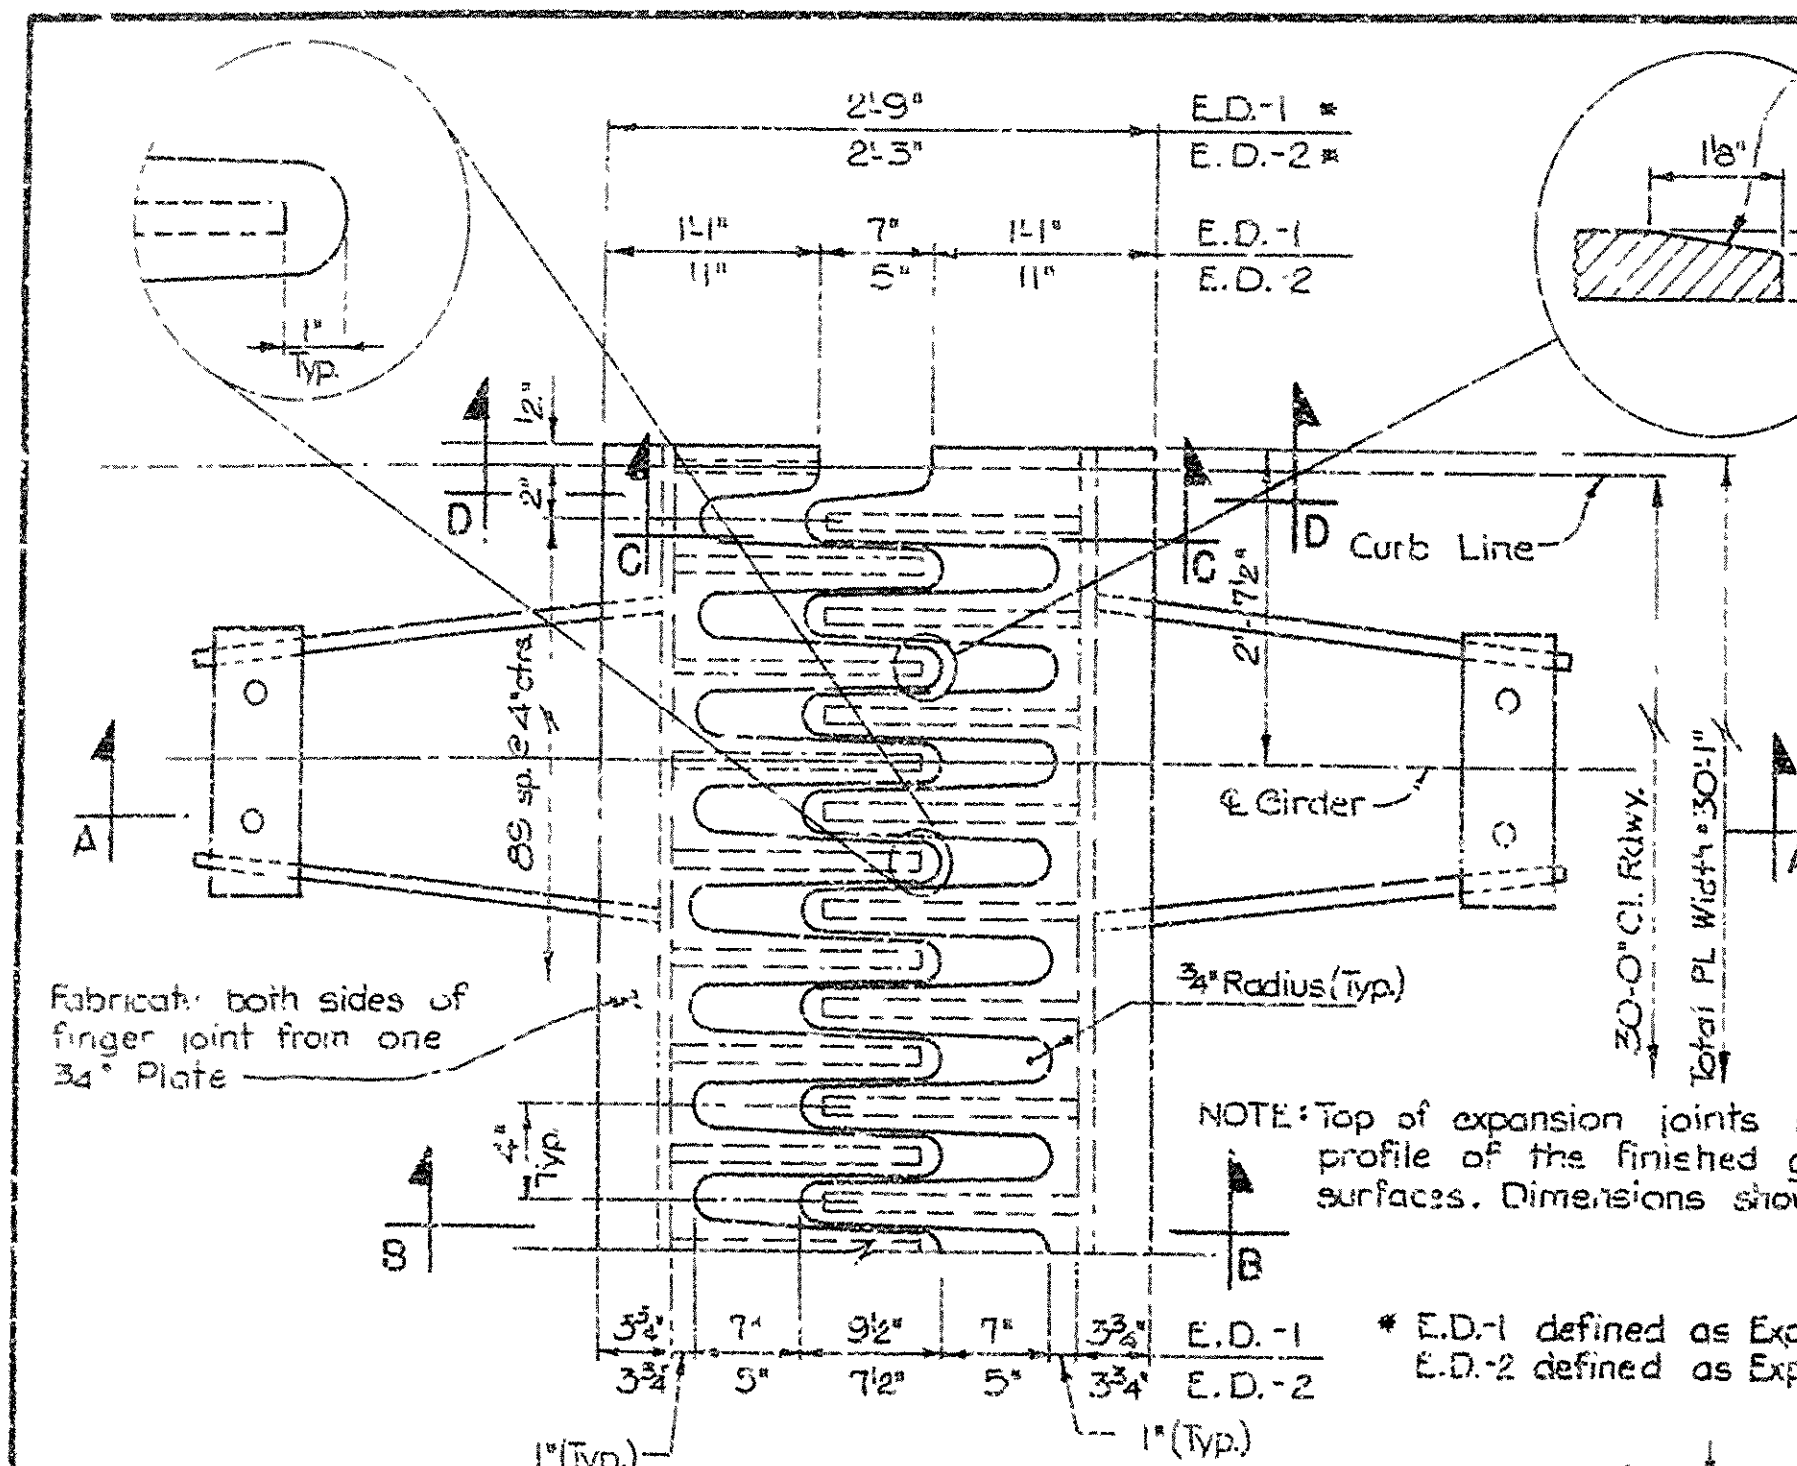 2'-9" E.D.-1 *
2'-3" E.D.-2 *
1'-1" 7" 1'-1" E.D.-1
11" 5" 11" E.D.-2
1"
Typ.
1/8"
1/2"
2"
D
C
C
D
Curb Line
2'-7 1/2"
89 sp. @ 4" ctrs.
℄ Girder
A
30'-0" Cl. Rdwy.
Total PL Width = 30'-1"
Fabricate both sides of
finger joint from one
3/4" Plate
3/4" Radius (Typ.)
4"
Typ.
NOTE: Top of expansion joints
profile of the finished
surfaces. Dimensions
B
B
3 3/4" 7" 9 1/2" 7" 3 3/4" E.D.-1
3 3/4" 5" 7 1/2" 5" 3 3/4" E.D.-2
* E.D.-1 defined as
E.D.-2 defined as
1" (Typ.)
1" (Typ.)